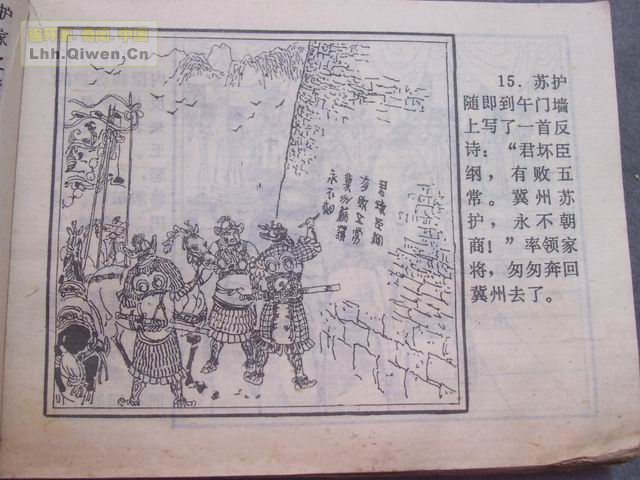 Lhh.Qiwen.Cn
护
家
君壞臣綱
有敗五常
冀州蘇護
永不朝
15．苏护
随即到午门墙
上写了一首反
诗：“君坏臣
纲，有败五
常。冀州苏
护，永不朝
商！”率领家
将，匆匆奔回
冀州去了。